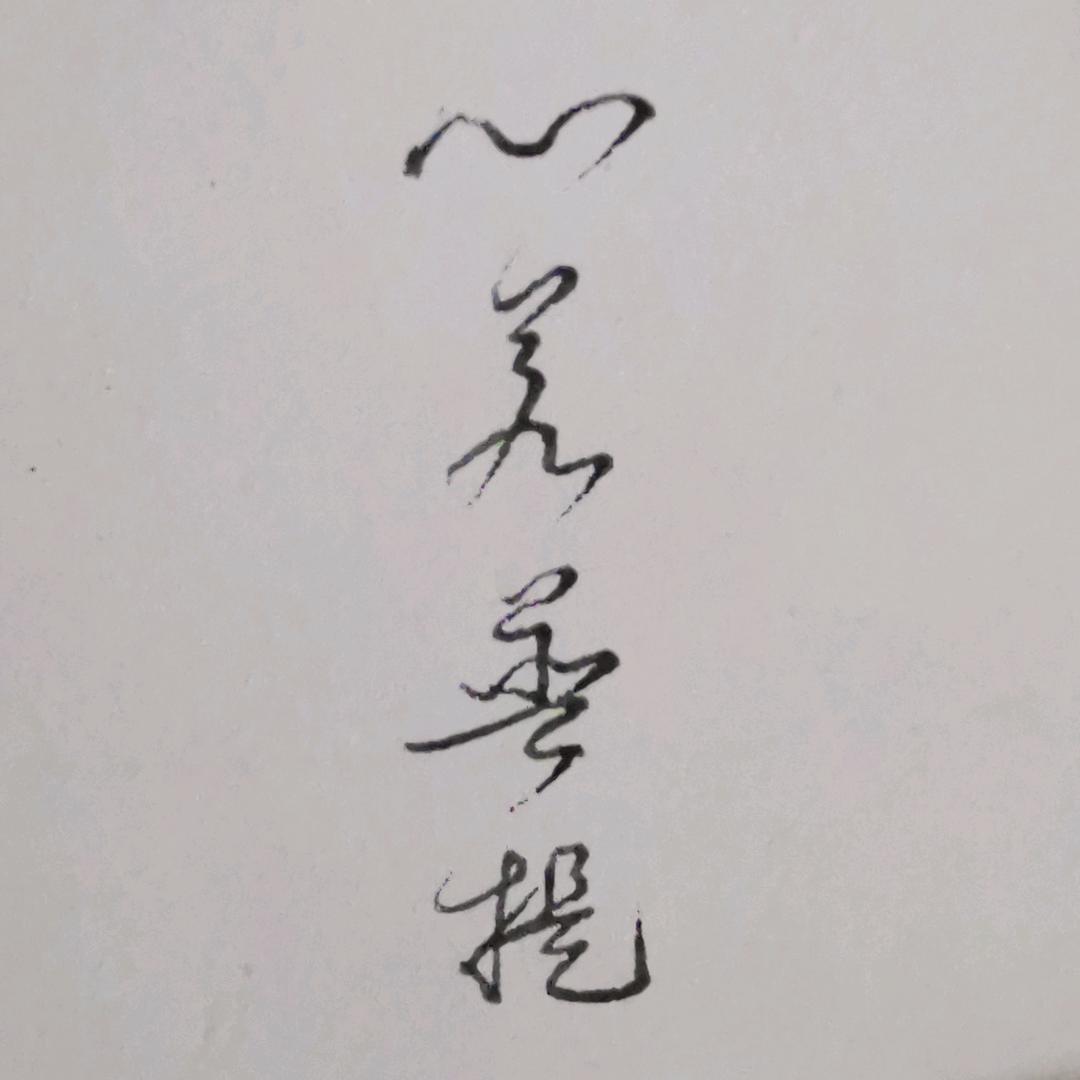 心若菩提